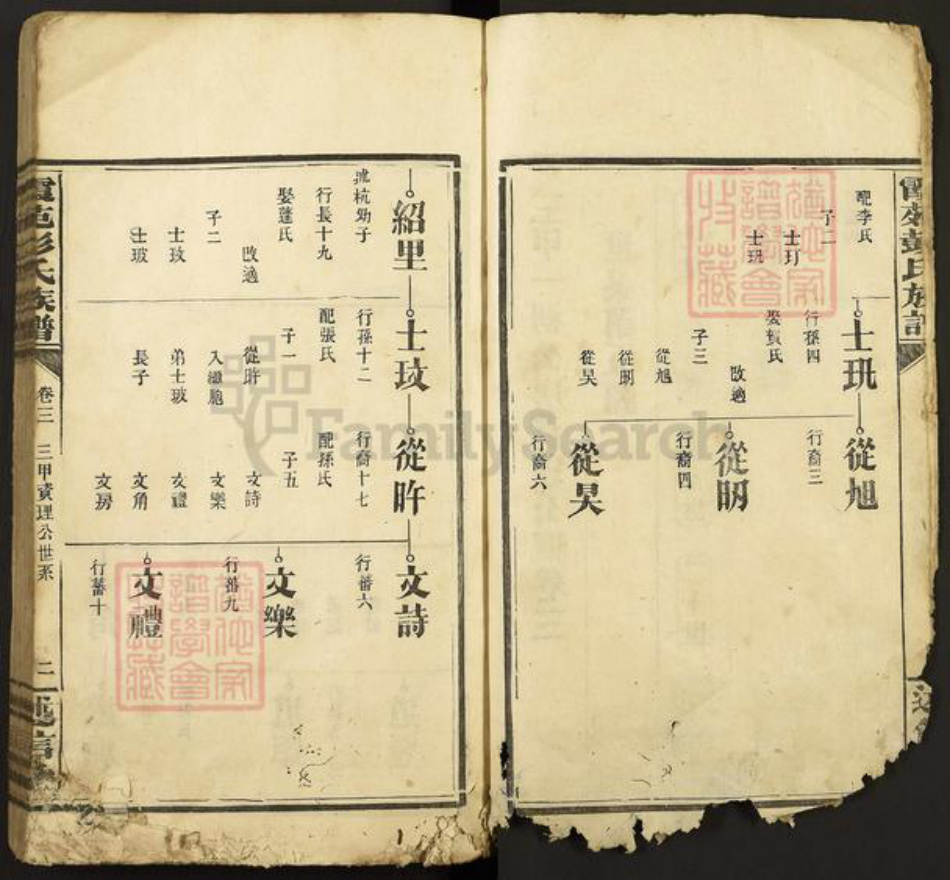 配李氏
子二
士玎
士玬
士玬
行孫四
娶賀氏
改適
子三
從旭
從明
從昊
從旭
行裔三
從明
行裔四
從昊
行裔六
紹里
號杭幼子
行長十九
娶蓬氏
改適
子二
士玟
士玻
士玟
行孫十二
配張氏
子一
從昨
入繼胞
弟士玻
長子
從昨
行裔十七
配孫氏
子五
文詩
文樂
文禮
文角
文房
文詩
行番六
文樂
行番九
文禮
行番十
彭氏族譜
卷三
三甲貴理公世系
二
述信
FamilySearch